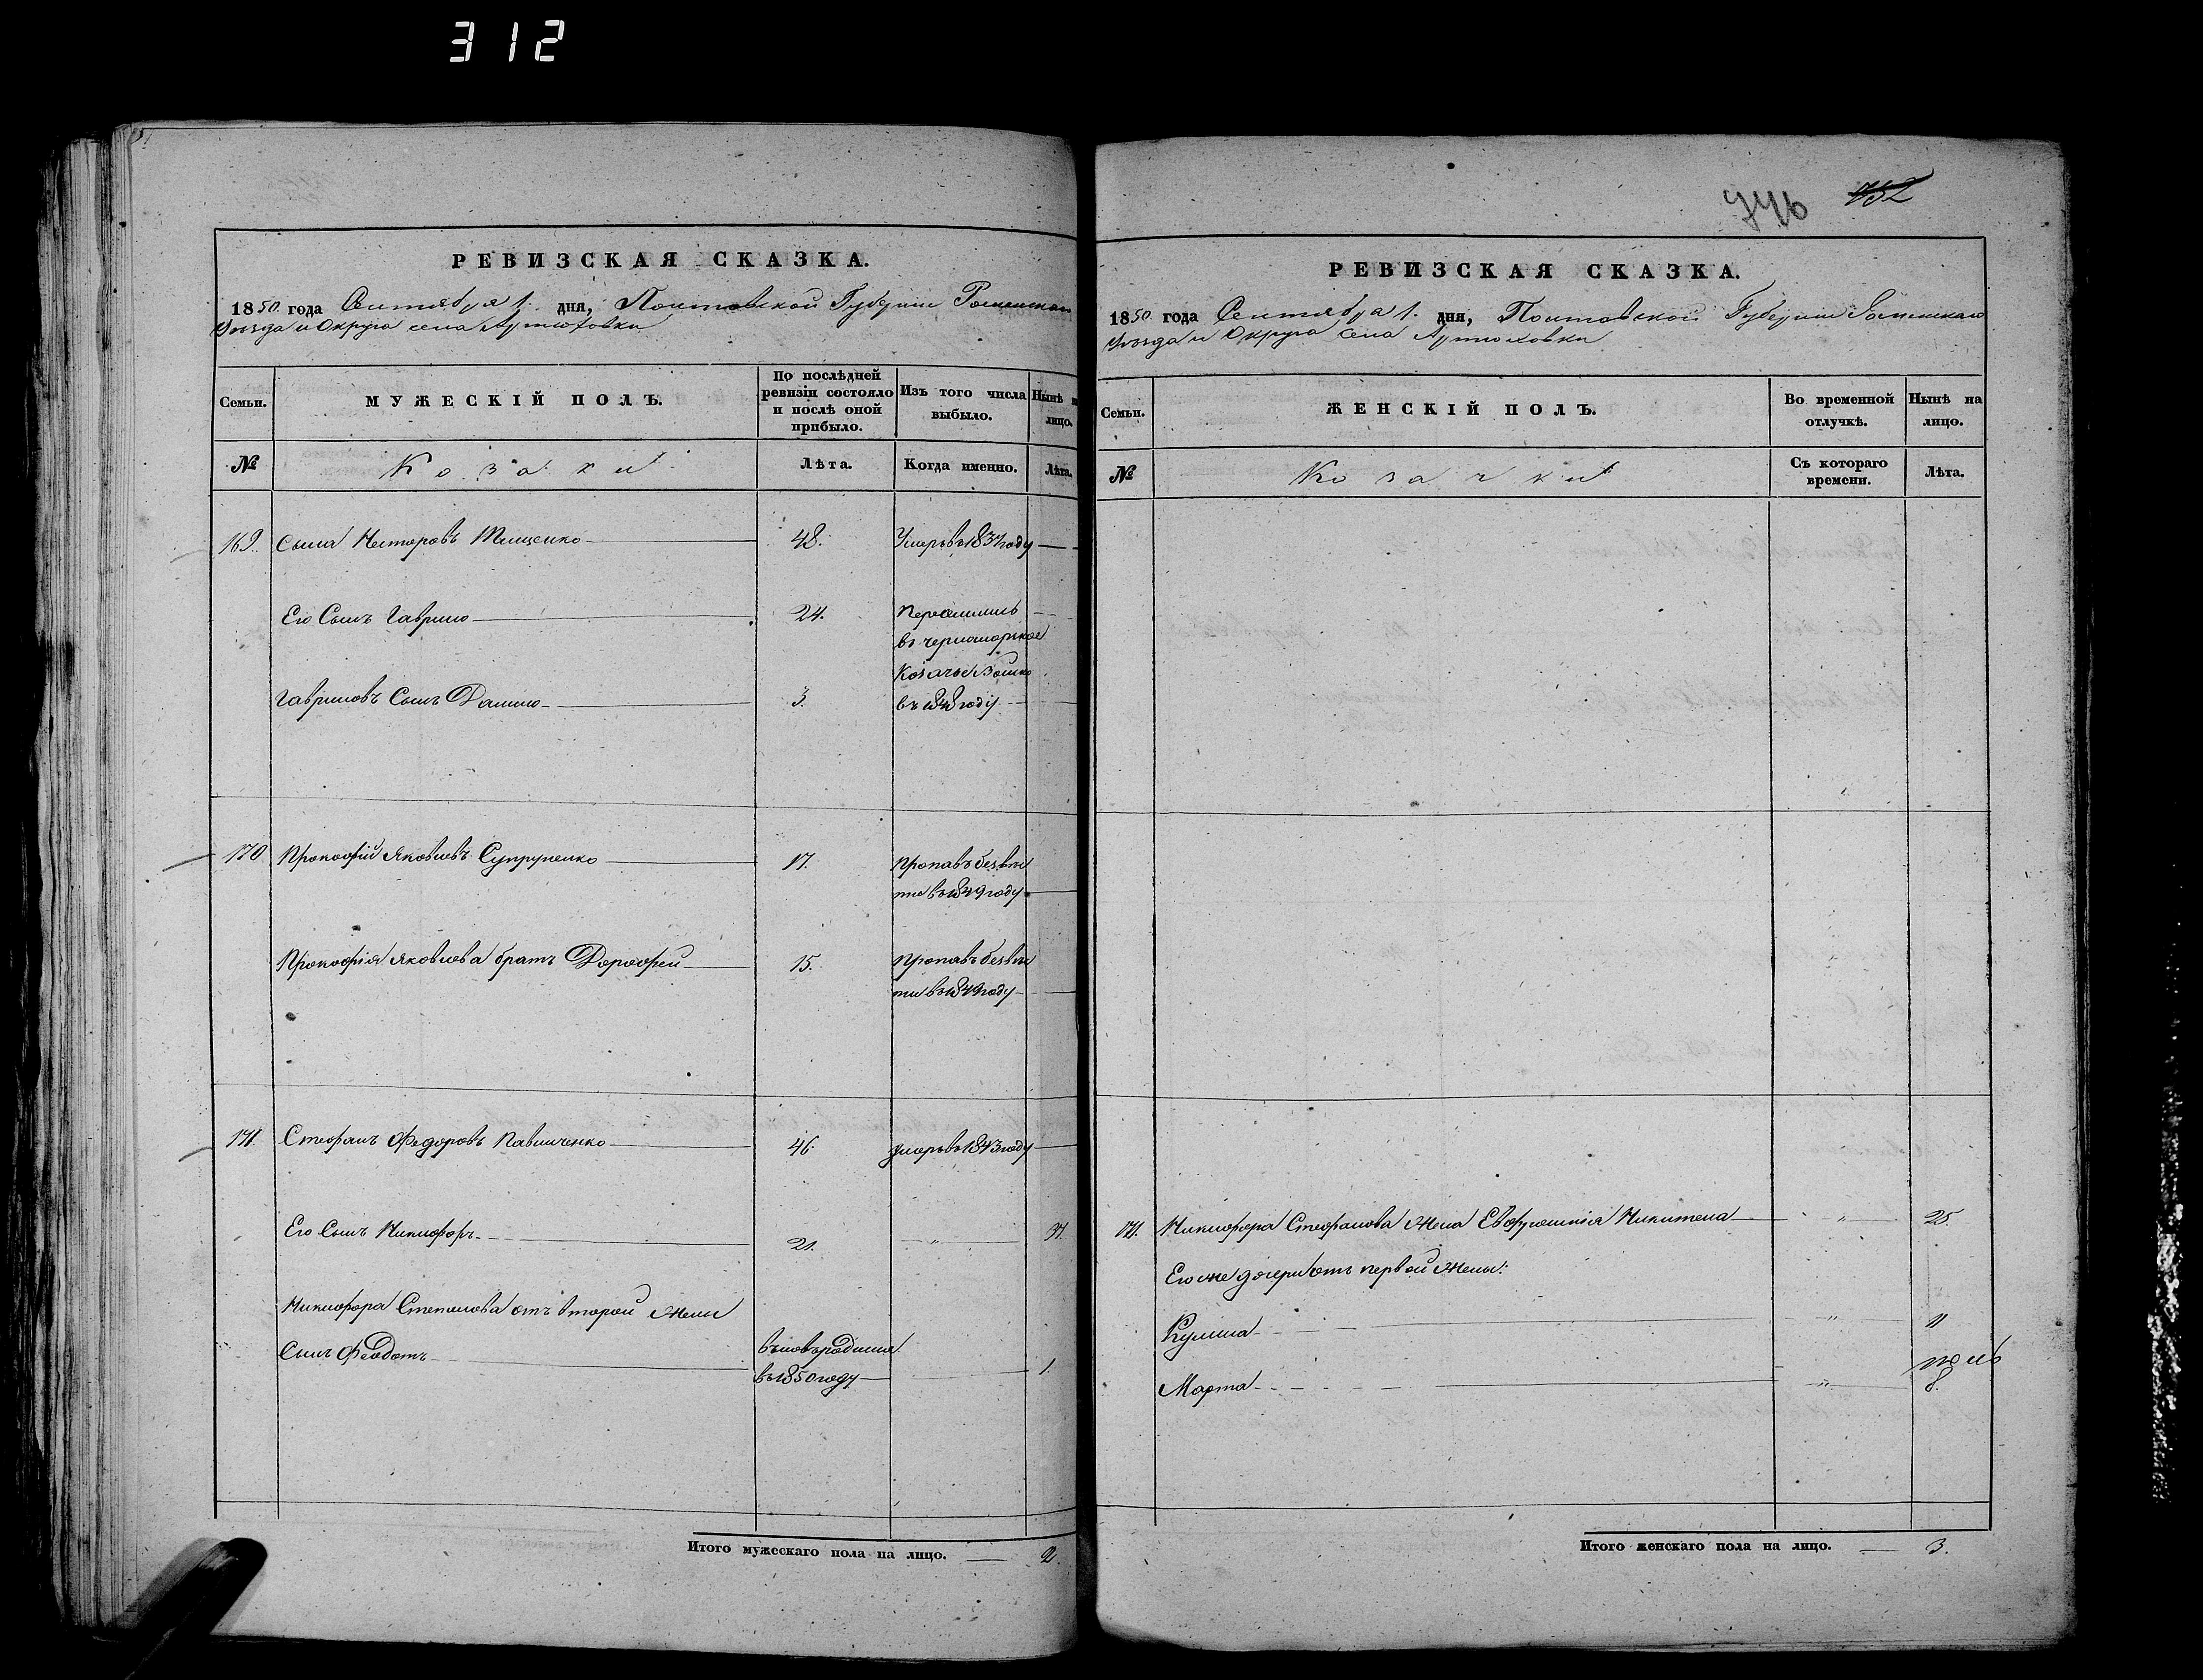 312
РЕВИЗСКАЯ СКАЗКА.
1850 года Сентября 1. дня, Полтавской Губернии Роменскаго
Уѣзда и Округа села Артюховки
Семьи.
МУЖЕСКІЙ ПОЛЪ.
По послѣдней ревизіи состояло и послѣ оной прибыло.
Изъ того числа выбыло.
Нынѣ на лицо.
№
Козаки
Лѣта.
Когда именно.
Лѣта.
169. Несторовъ Тищенко 48. Умеръ въ 1837 году
Его Сынъ Гаврило 24. Переселились
въ черноморское
Козачье Войско
Гавриловъ Сынъ Данило 3. въ 1848 году
170 Прокофій Яковлевъ Супруненко 17. Пропавъ безвѣ
сти въ 1849 году
Прокофія Яковлева братъ Дорофей 15. Пропавъ безвѣ
сти въ 1849 году
171. Стефанъ Федоровъ Павличенко 46. умеръ въ 1843 году
Его Сынъ Никифоръ 21. " 37.
Никифора Степанова отъ второй жены
Сынъ Феодотъ вновь родился
въ 1850 году 1.
Итого мужескаго пола на лицо. 2.
746 752
РЕВИЗСКАЯ СКАЗКА.
1850 года Сентября 1. дня, Полтавской Губерніи Роменскаго
Уѣзда и Округа села Артюховки
Семьи.
ЖЕНСКІЙ ПОЛЪ.
Во временной отлучкѣ.
Нынѣ на лицо.
№
Козачки
Съ котораго времени.
Лѣта.
171. Никифора Стефанова жена Евфросинія Никитена " 25.
Его же дочери отъ первой жены:
Кулина " 11
Марта " 8.
Итого женскаго пола на лицо. 3.